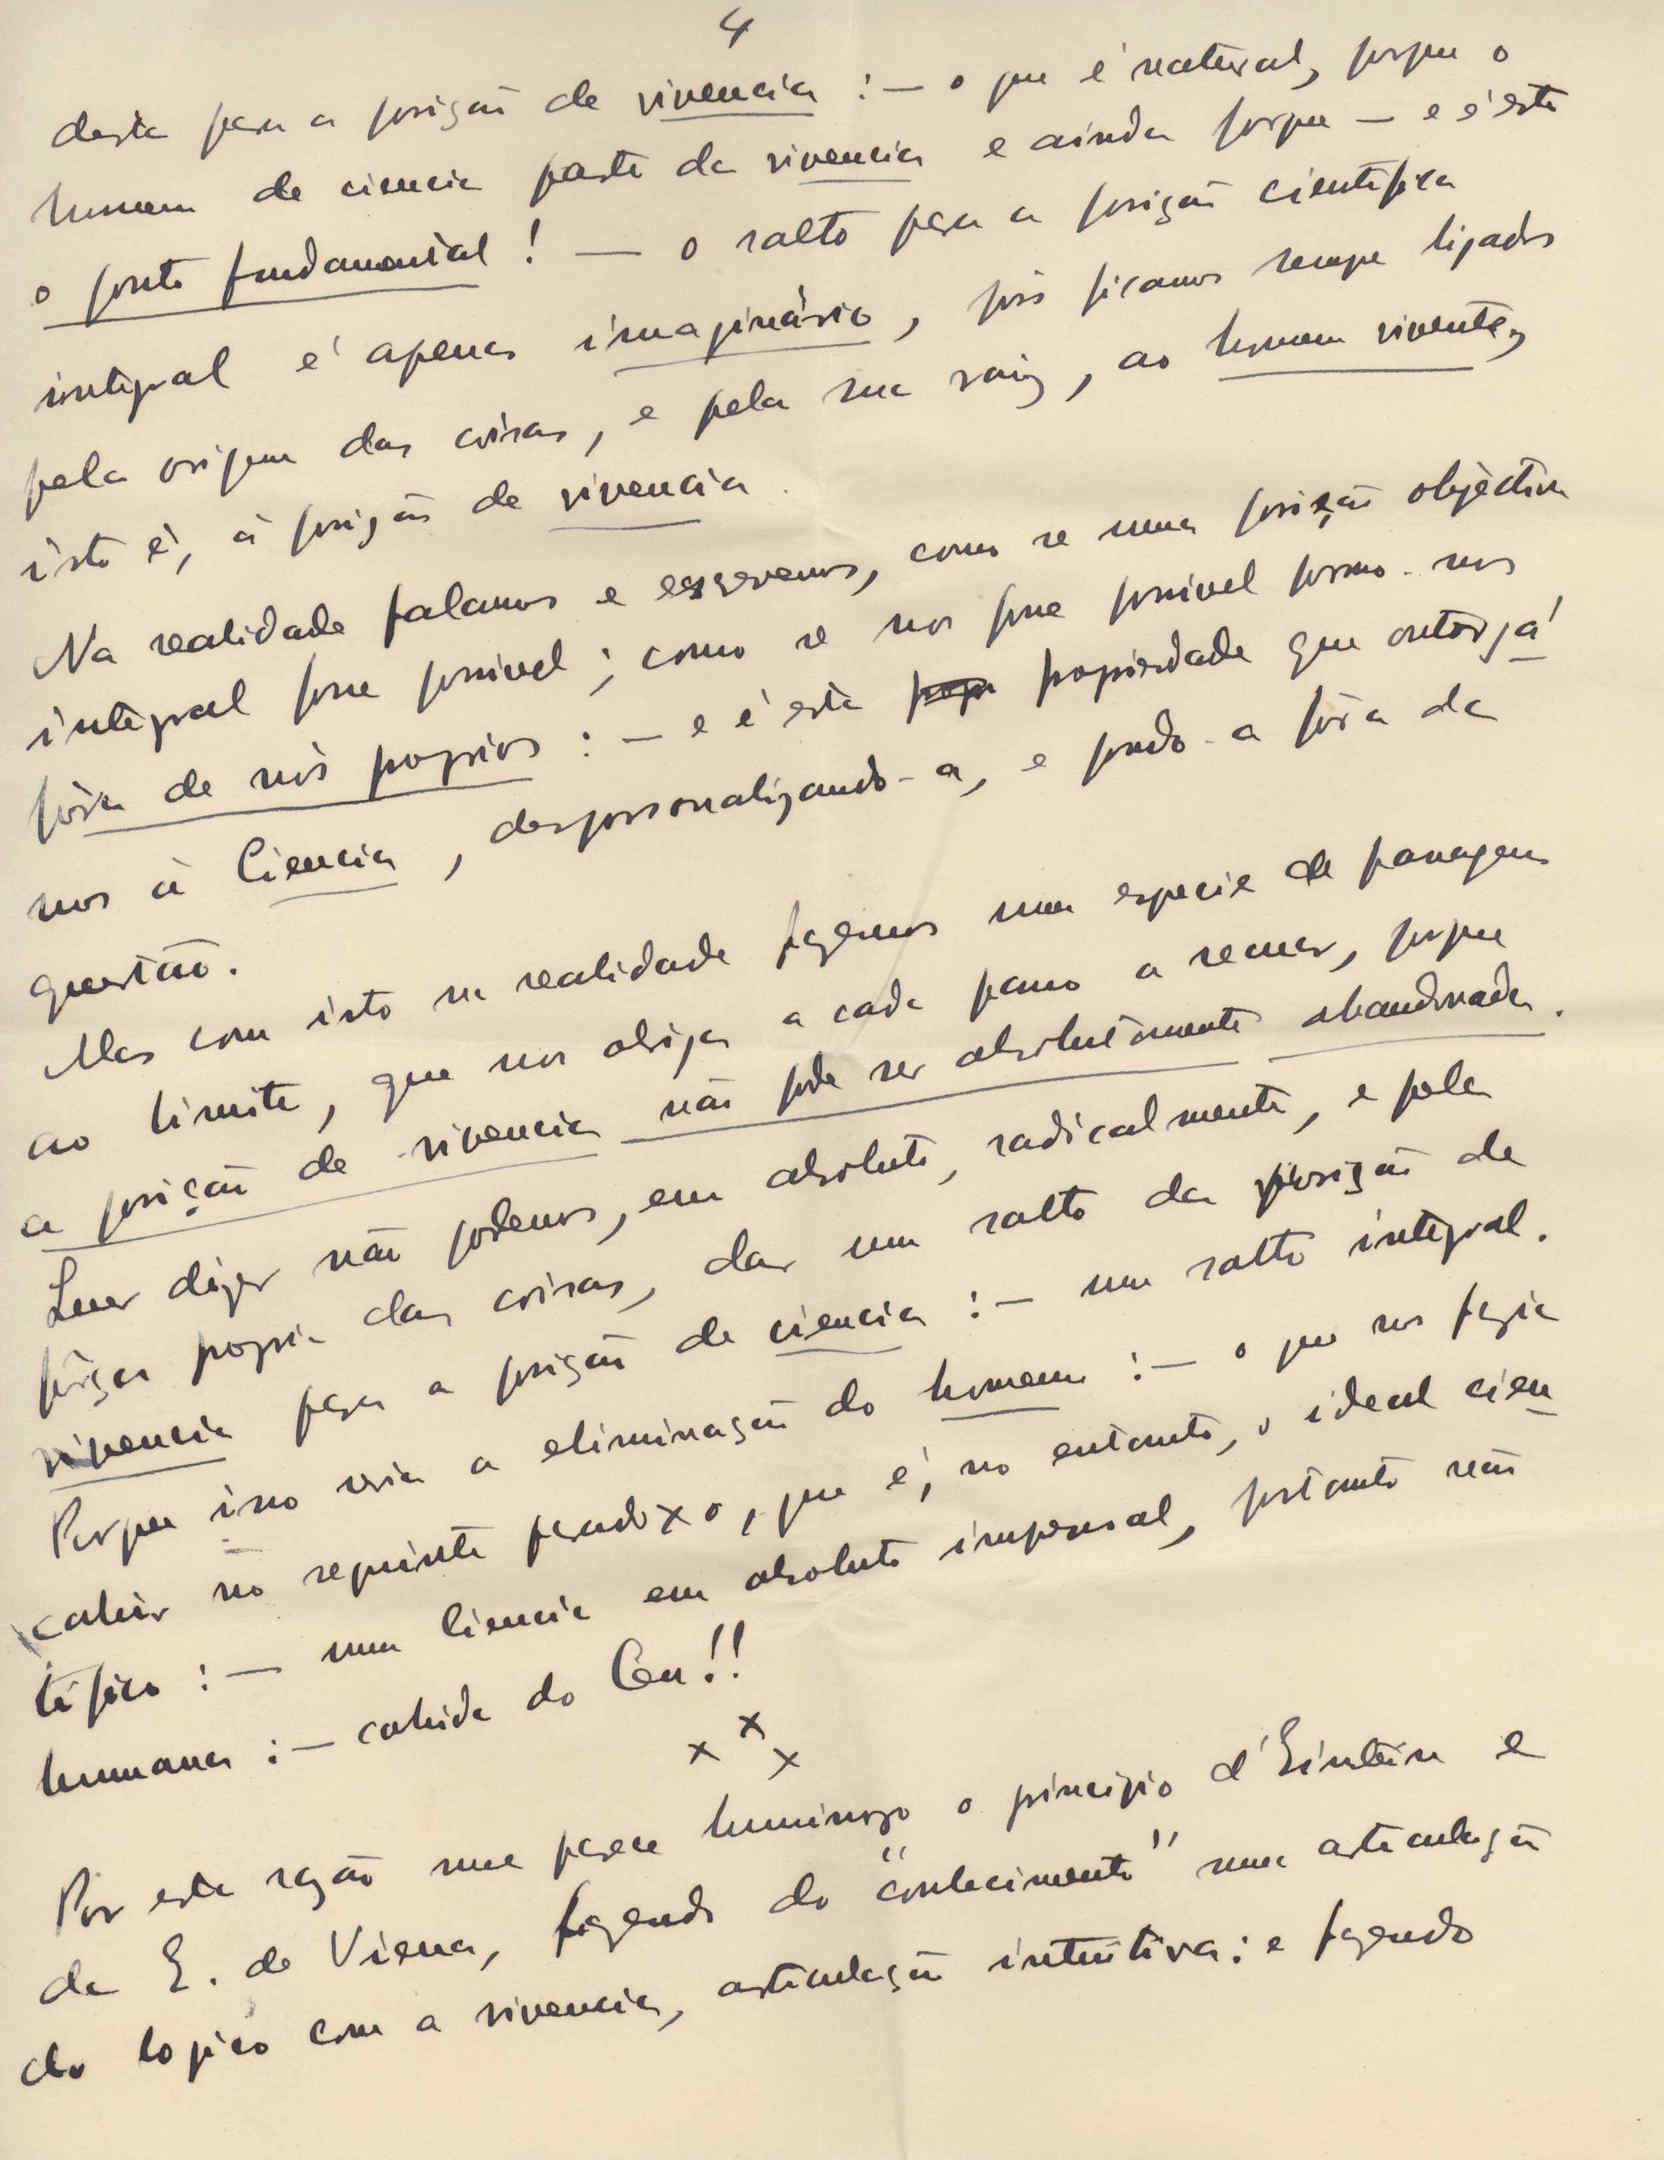 4
desta para a posição de vivencia :— o que é natural, porque o
homem de ciencia parte da vivencia e ainda porque — e é este
o ponto fundamental ! — o salto para a posição cientifica
integral é apenas imaginário, pois ficamos sempre ligados
pela origem das coisas, e pela sua raiz, ao homem vivente,
isto é, à posição de vivencia.
Na realidade falamos e escrevemos, como se uma posição objectiva
integral fosse possivel ; como se nos fosse possivel pormo-nos
fóra de nós proprios :— e é esta propriedade que outorgá
mos à Ciencia, despersonalizando-a, e pondo-a fóra da
questão.
Mas com isto na realidade fazemos uma especie de passagem
ao limite, que nos obriga a cada passo a recuar, porque
a posição de vivencia não pode ser absolutamente abandonada.
Quer dizer não podemos, em absoluto, radicalmente, e pela
fôrça propria das coisas, dar um salto da posição de
vivencia para a posição de ciencia :— um salto integral.
Porque isso seria a eliminação do homem :— o que nos fazia
cahir no seguinte paradoxo, que é, no entanto, o ideal cien
tifico :— uma Ciencia em absoluto impessoal, portanto não
humana :— cahida do Ceu!!
x x x
Por esta razão me parece luminoso o principio d'Einstein e
da E. de Viena, fazendo do "conhecimento" uma articulação
do logico com a vivencia, articulação intuitiva : e fazendo